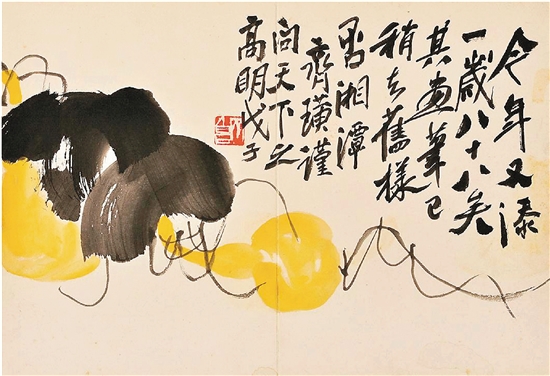 今年又添
一歲八十八矣
其畫筆已
稍去舊樣
否湘潭
齊璜謹
问天下之
高明戊子